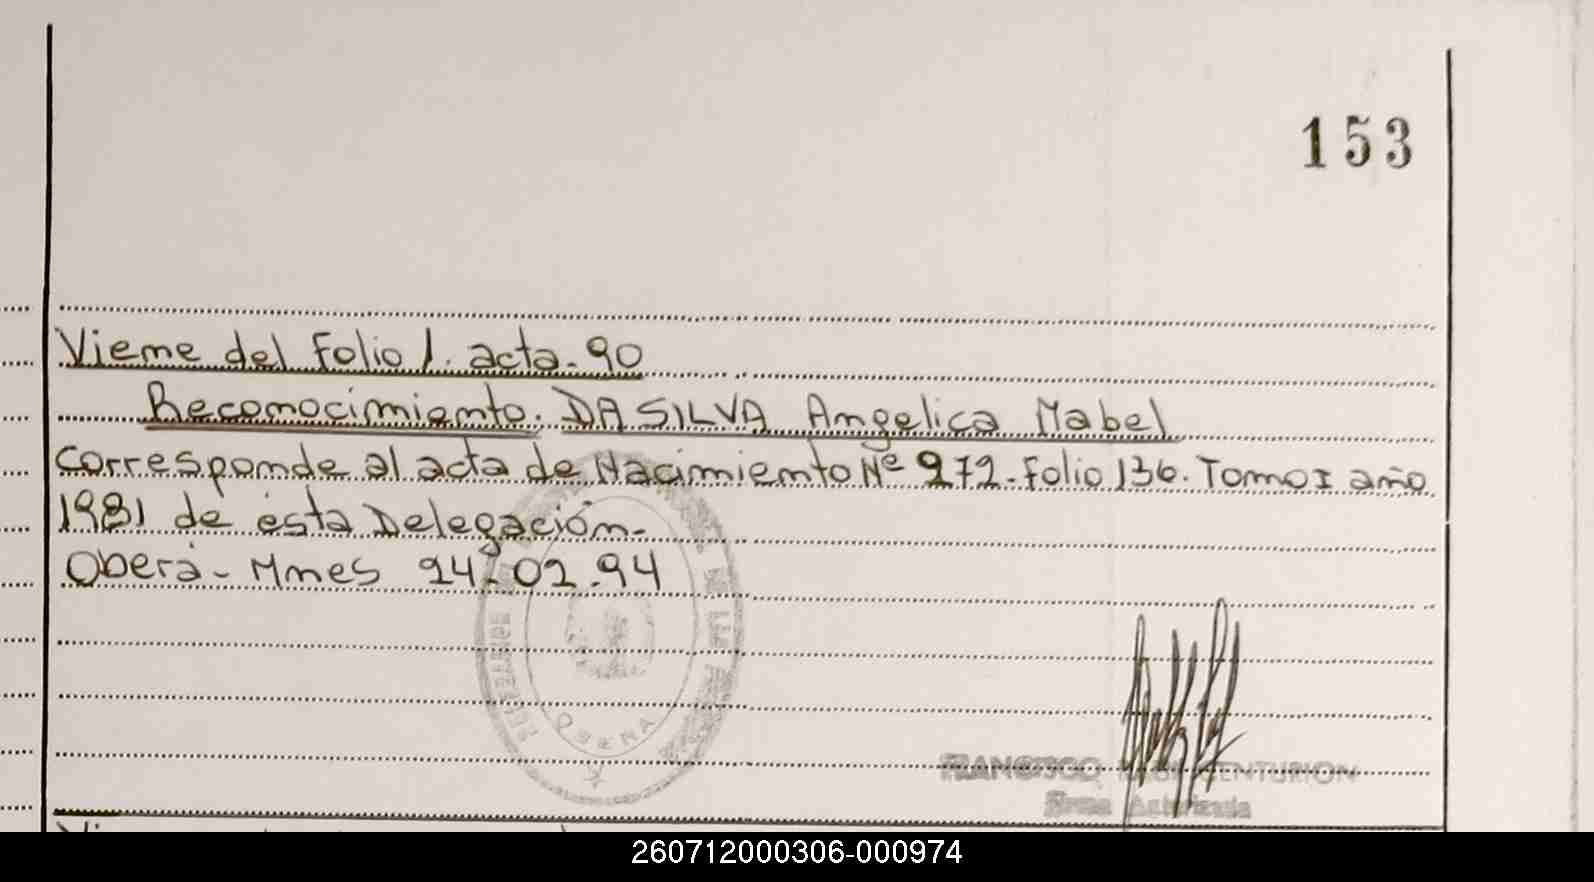 153
Viene del Folio 1. acta. 90
Reconocimiento. DA SILVA Angelica Mabel
corresponde al acta de Nacimiento Nº 272. Folio 136. Tomo I año
1981 de ésta Delegación.
Oberá - Mnes 24-02.94
FRANCISCO CENTURION
Firma Autorizada
260712000306-000974